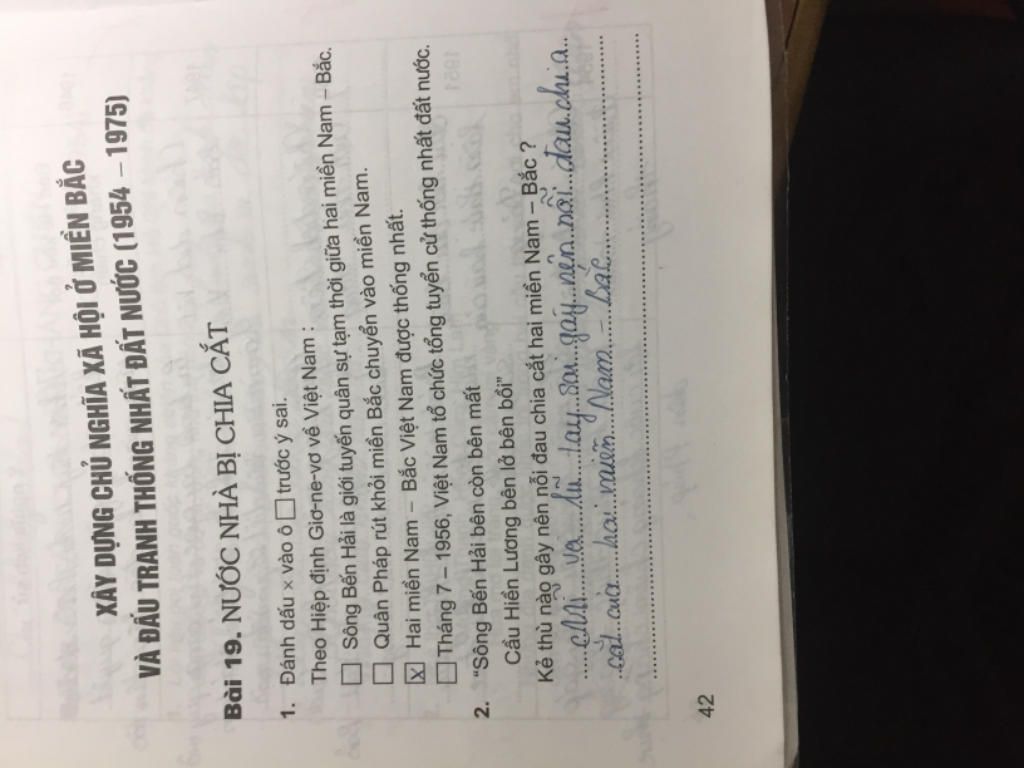 XÂY DỰNG CHỦ NGHĨA XÃ HỘI Ở MIỀN BẮC
VÀ ĐẤU TRANH THỐNG NHẤT ĐẤT NƯỚC (1954 – 1975)
Bài 19. NƯỚC NHÀ BỊ CHIA CẮT
1. Đánh dấu × vào ô □ trước ý sai.
Theo Hiệp định Giơ-ne-vơ về Việt Nam :
□ Sông Bến Hải là giới tuyến quân sự tạm thời giữa hai miền Nam – Bắc.
□ Quân Pháp rút khỏi miền Bắc chuyển vào miền Nam.
☒ Hai miền Nam – Bắc Việt Nam được thống nhất.
□ Tháng 7 – 1956, Việt Nam tổ chức tổng tuyển cử thống nhất đất nước.
2. "Sông Bến Hải bên còn bên mất
Cầu Hiền Lương bên lở bên bồi"
Kẻ thù nào gây nên nỗi đau chia cắt hai miền Nam – Bắc ?
Mĩ và lũ tay sai gây nên nỗi đau chia
cắt của hai miền Nam - Bắc
42